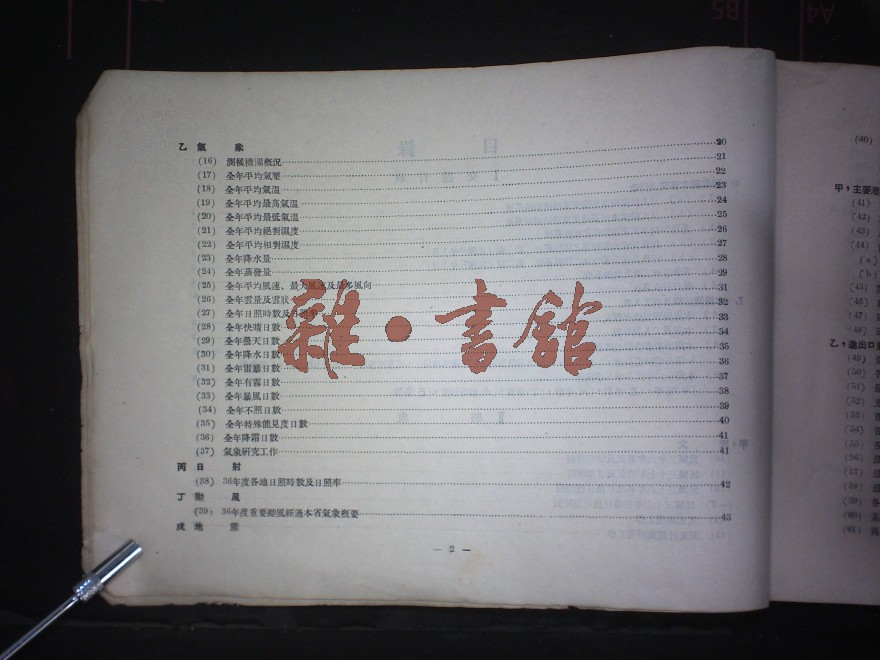 A4
B5
雜·書館
乙 氣 象
20
(16) 測候機關概況 21
(17) 全年平均氣壓 22
(18) 全年平均氣溫 23
(19) 全年平均最高氣溫 24
(20) 全年平均最低氣溫 25
(21) 全年平均絕對濕度 26
(22) 全年平均相對濕度 27
(23) 全年降水量 28
(24) 全年蒸發量 29
(25) 全年平均風速、最大風速及最多風向 31
(26) 全年雲量及雲狀 32
(27) 全年日照時數及日照率 33
(28) 全年快晴日數 34
(29) 全年曇天日數 35
(30) 全年降水日數 36
(31) 全年雷暴日數 37
(32) 全年有霧日數 38
(33) 全年暴風日數 39
(34) 全年不照日數 40
(35) 全年特殊能見度日數 41
(36) 全年降霜日數 41
(37) 氣象研究工作
丙 日 射
(38) 36年度各地日照時數及日照率 42
丁 颱 風
(39) 36年度重要颱風經過本省氣象概要 43
戊 地 震
— 2 —
(40)
甲，主要港
(41)
(42)
(43)
(44)
(a)
(b)
(45)
(46)
(47)
(48)
乙，進出口
(49)
(50)
(51)
(52)
(53)
(54)
(55)
(56)
(57)
(58)
(59)
(60)
(61)